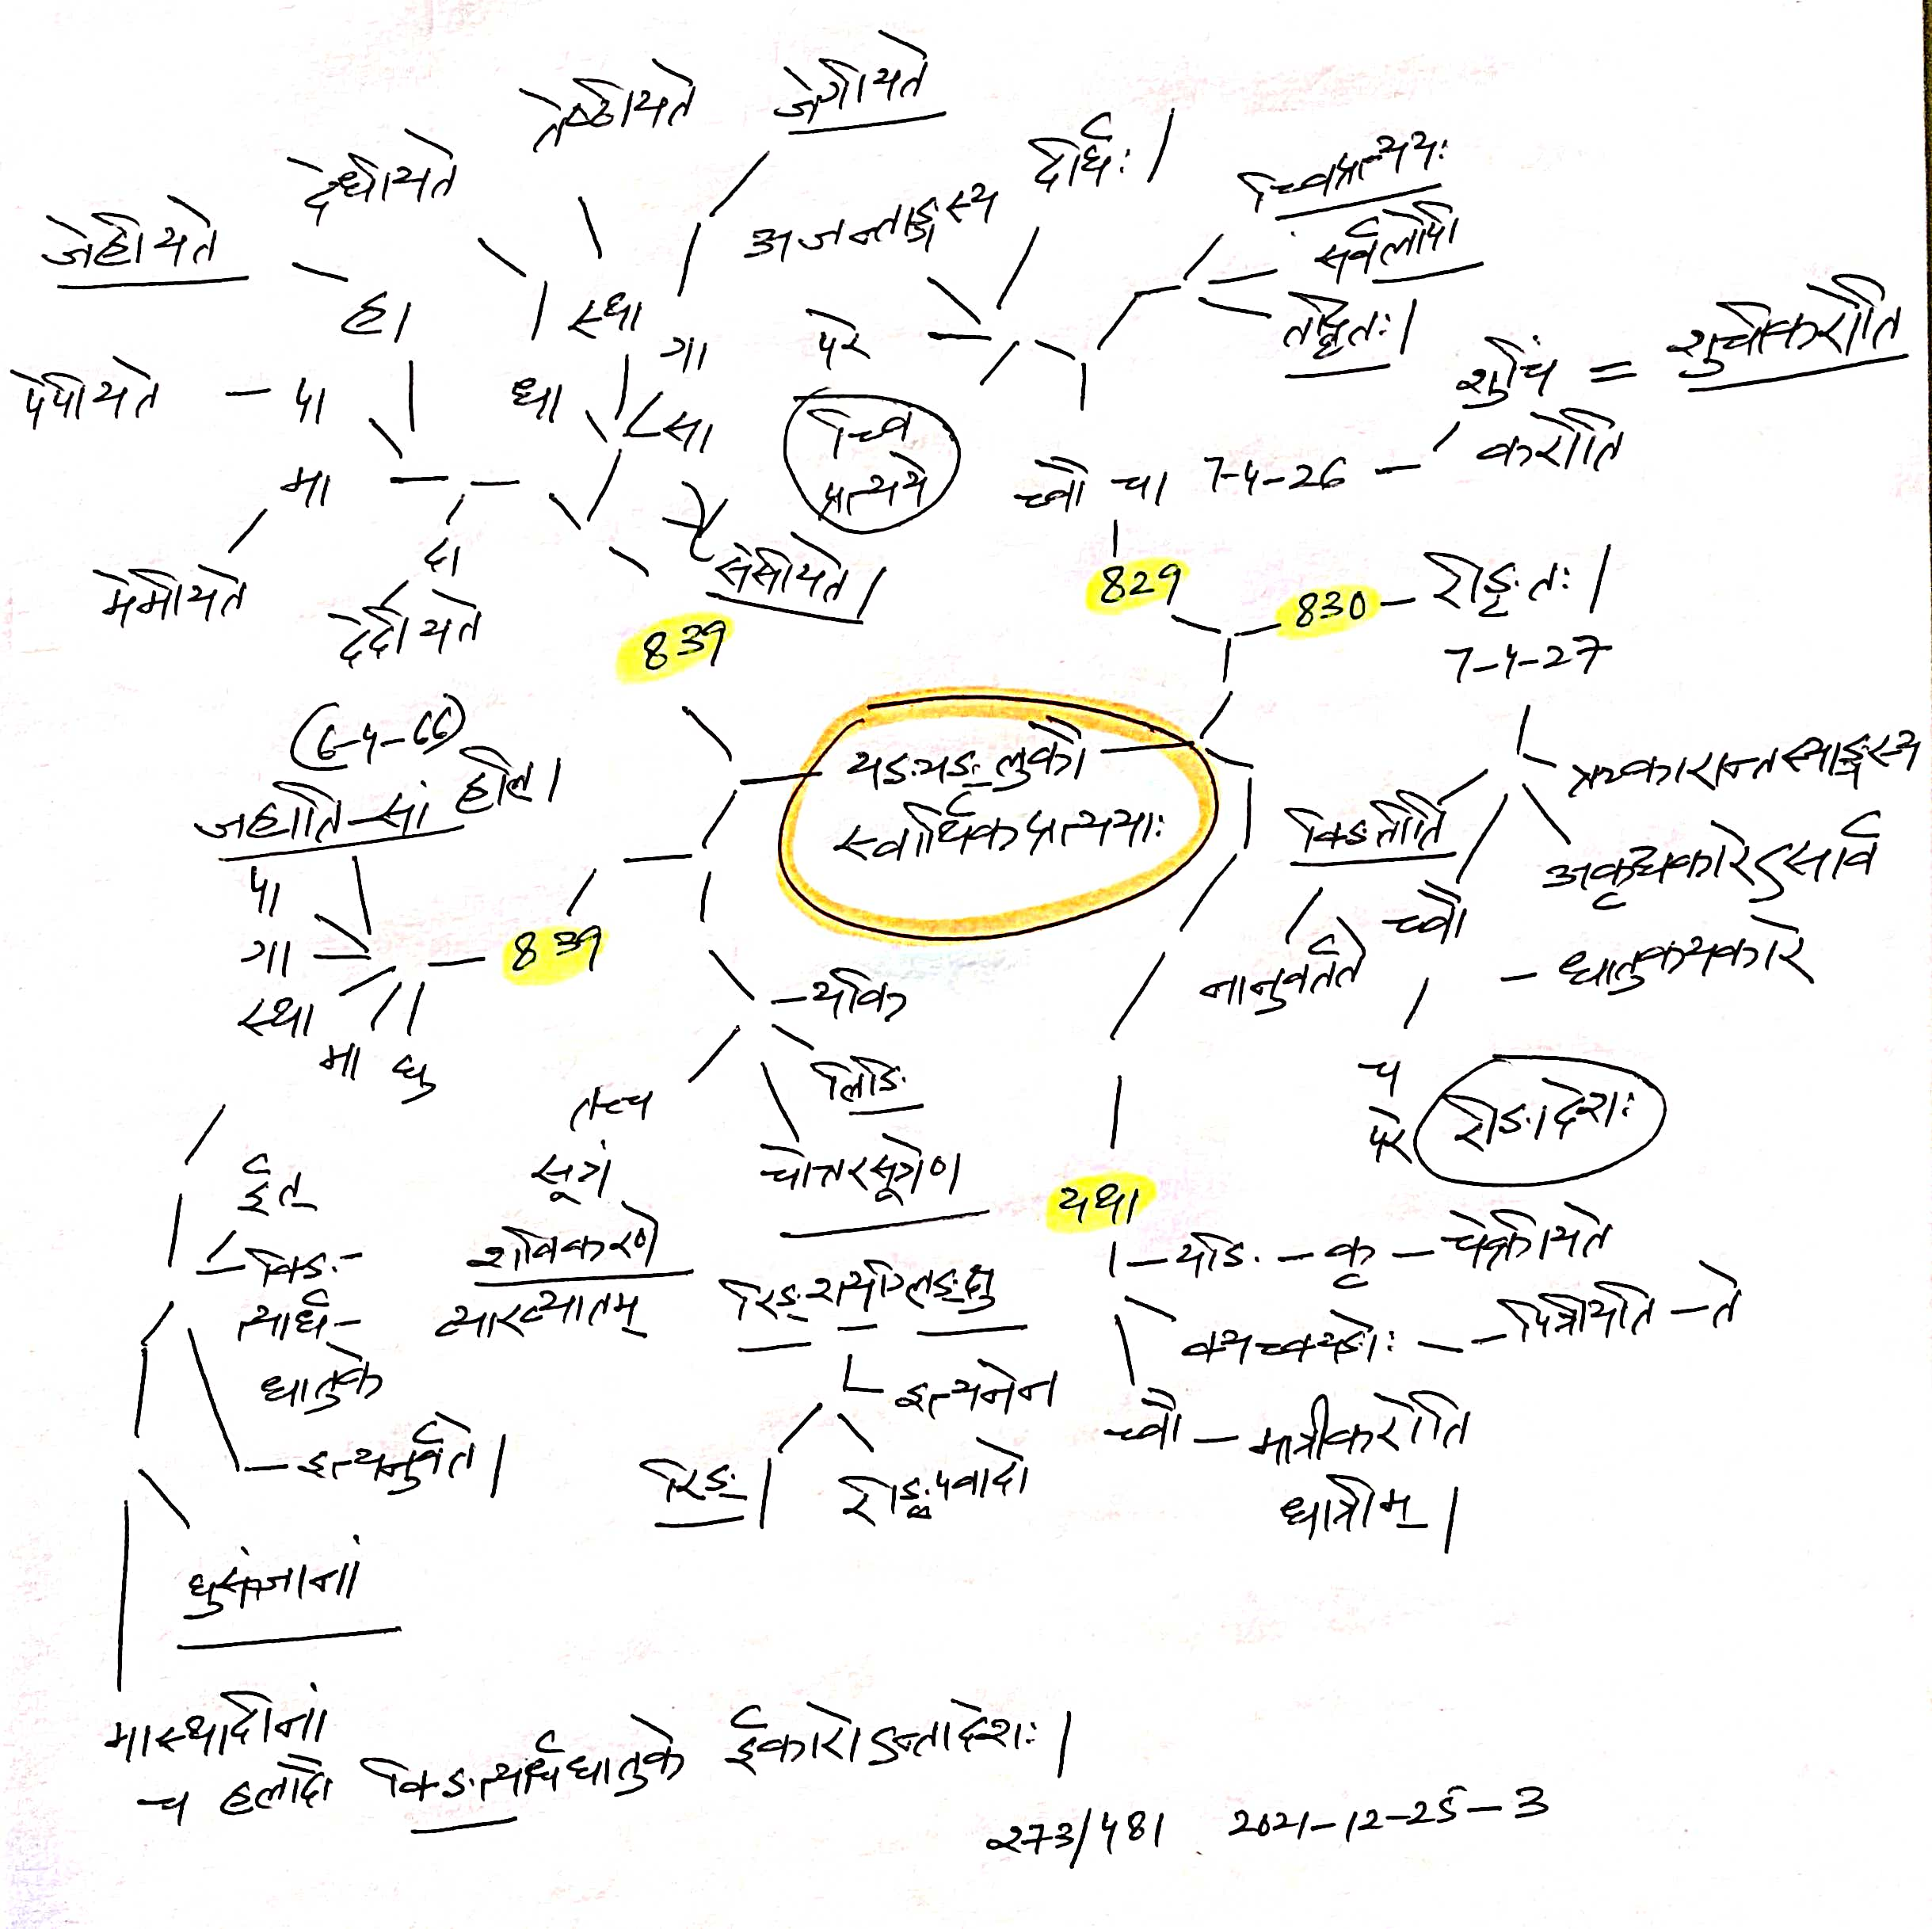 तेष्ठीयते
जेगीयते
देधीयते
जेहीयते
अजन्ताङ्गस्य
दीर्घः।
च्विप्रत्ययः
सर्वलोपी
तद्धितः।
हा
स्था
गा
परे
शुचिं = शुचीकरोति
करोति
पेपीयते - पा
धा
सा
च्वि
प्रत्यये
मा
च्वौ च। 7-4-26 -
दा
सेसीयते।
मेमीयते
देदीयते
839
829
830 - रीङृतः।
7-4-27
(6-4-66)
जहातिसां हलि।
यङ्यङ्लुकौ
स्वार्थिकप्रत्ययाः
ऋकारान्तस्याङ्गस्य
क्ङितीति
अकृद्यकारेऽसार्व
पा
च्वौ
गा
839
नानुवर्तते
- धातुकयकारे
स्था
- यकि
मा घु
लिङि
च
परे
रीङादेशः
तच्च
ईत्
सूत्रं
चोत्तरसूत्रेण
यथा
क्ङि-
शविकरणे
- यङि - कृ - चेक्रीयते
त्यार्ध-
व्याख्यातम्
रिङ्शयग्लिङ्क्षु
क्यच्क्यङोः - - पित्रीयति - ते
धातुके
इत्यनेन
च्वौ - मात्रीकरोति
- इत्यनुवर्तते।
रिङ्।
रीङपवादो
धात्रीम्।
घुसंज्ञानां
मास्थादीनां
च हलादौ क्ङित्यार्धधातुके ईकारोऽन्तादेशः।
273/481 2021-12-25-3